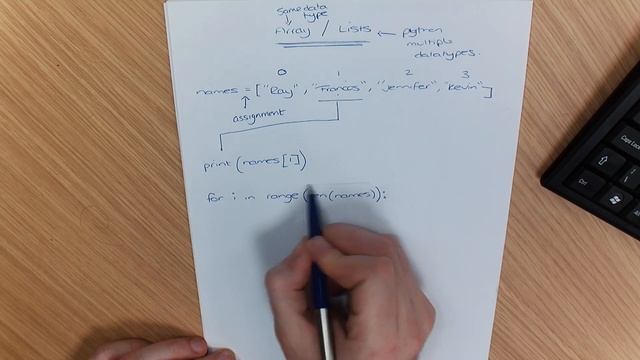 same data
type
Array / Lists ← python
multiple
datatypes.
0 1 2 3
names = ["Ray", "Francos", "Jennifer", "Kevin"]
assignment
print (names[1])
for i in range (len(names)):
Caps Lock
Ctrl